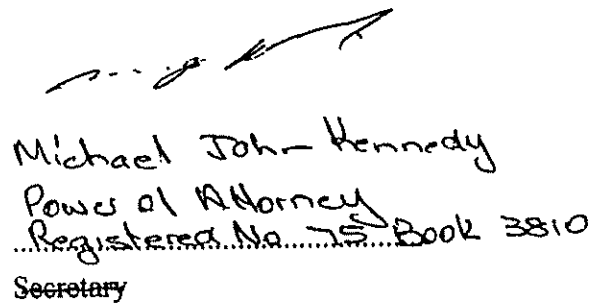 Michael John Kennedy
Power of Attorney
Registered No 75 Book 3810
Secretary